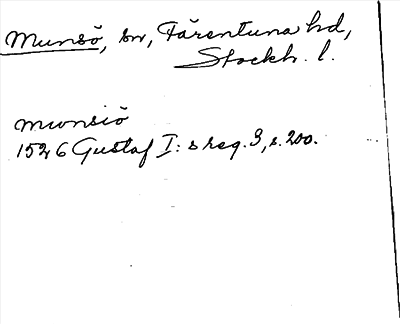 Munsö, sn, Färentuna hd,
Stockh. l.
Mwnsiö
1526 Gustaf I: s reg. 3, s. 200.